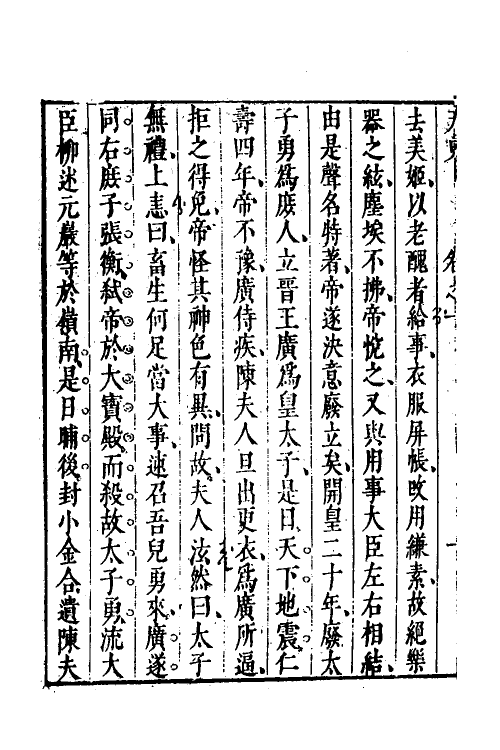 去美姬以老醜者給事衣服屏帳改用縑素故絕樂
器之絃塵埃不拂帝悅之又與用事大臣左右相結
由是聲名特著帝遂決意廢立矣開皇二十年廢太
子勇爲庶人立晉王廣爲皇太子是日天下地震仁
壽四年帝不豫廣侍疾陳夫人旦出更衣爲廣所逼
拒之得免帝怪其神色有異問故夫人泫然曰太子
無禮上恚曰畜生何足當大事速召吾兒勇來廣遂
同右庶子張衡弒帝於大寶殿而殺故太子勇流大
臣柳述元巖等於嶺南是日晡後封小金合遺陳夫